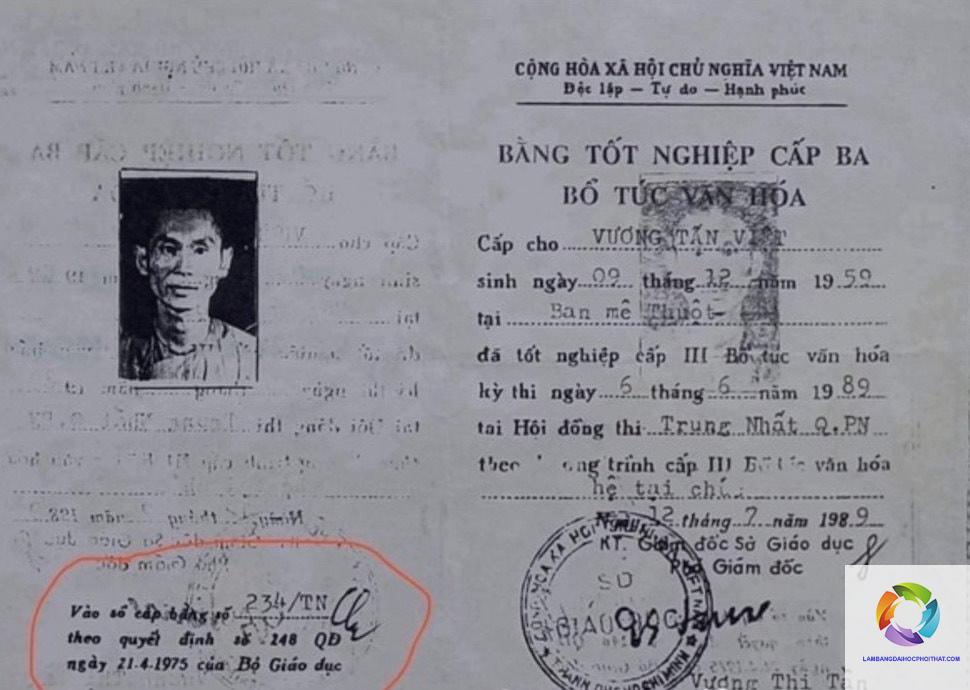 Vào sổ cấp bằng số 234/TN
theo quyết định số 148 QĐ
ngày 21.4.1975 của Bộ Giáo dục
CỘNG HÒA XÃ HỘI CHỦ NGHĨA VIỆT NAM
Độc lập — Tự do — Hạnh phúc
BẰNG TỐT NGHIỆP CẤP BA
BỔ TÚC VĂN HÓA
Cấp cho VƯƠNG TẤN VIỆT
sinh ngày 09 tháng 12 năm 1959
tại Ban mê Thuột
đã tốt nghiệp cấp III Bổ túc văn hóa
kỳ thi ngày 6 tháng 6 năm 1989
tại Hội đồng thi Trung Nhất Q.PN
theo trình cấp III văn hóa
hệ tại
12 tháng 7 năm 1989
KT. Giám đốc Sở Giáo dục
Phó Giám đốc
SỞ
GIÁO DỤC
Vương Thị
LAMBANGDAIHOCPHOITHAT.COM